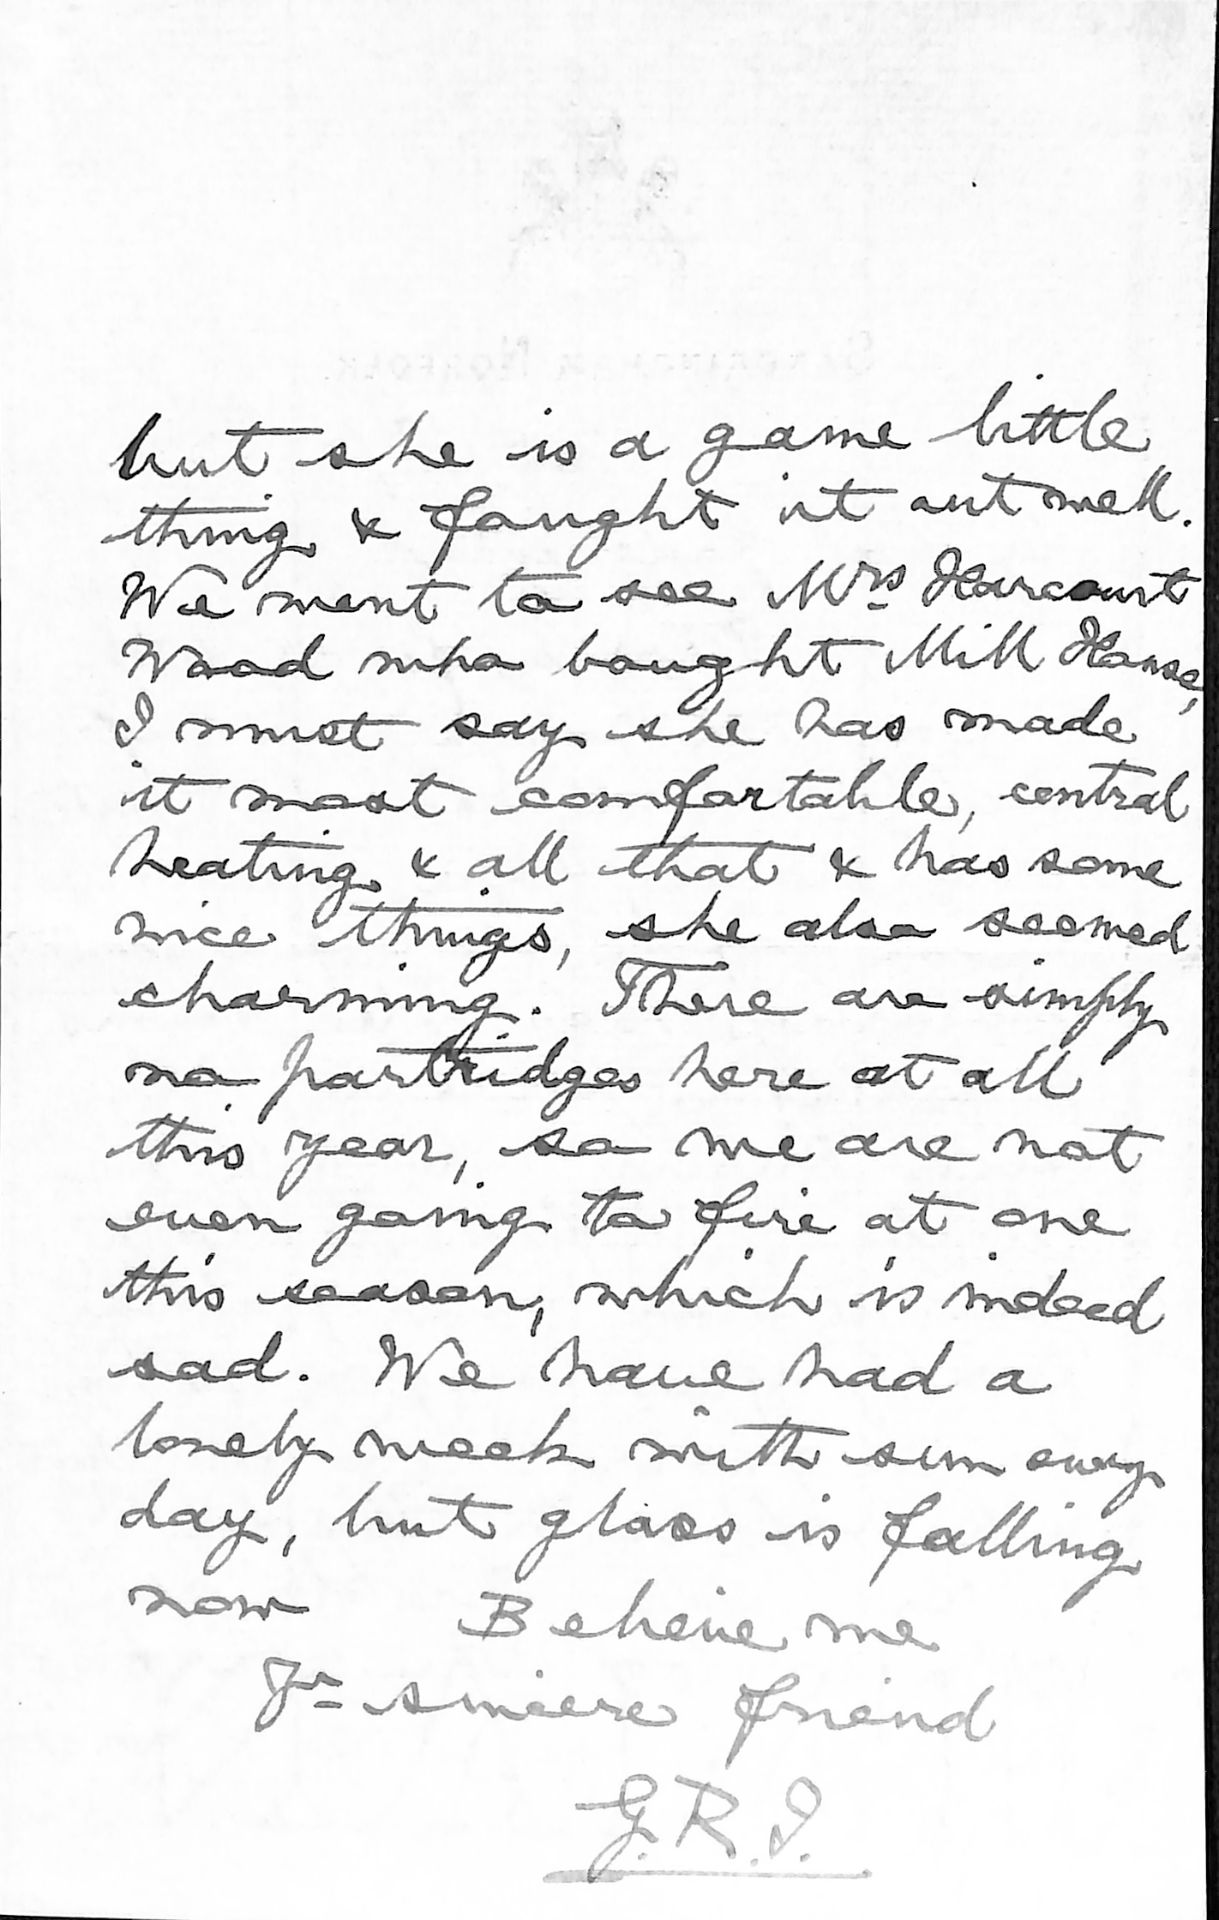 but she is a game little
thing & fought it out well.
We went to see Mrs Harcourt
Wood who bought Mill House,
I must say she has made
it most comfortable, central
heating & all that & has some
nice things, she also seemed
charming. There are simply
no partridges here at all
this year, so we are not
even going to fire at one
this season, which is indeed
sad. We have had a
lovely week with sun every
day, but glass is falling
now Believe me
Yr sincere friend
G.R.I.